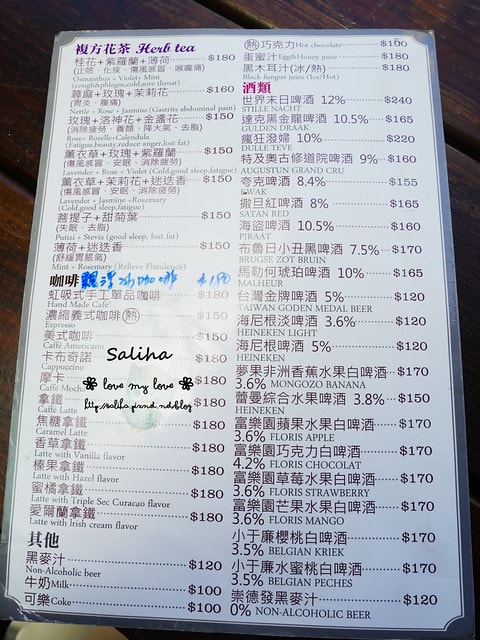 複方花茶 Herb tea
桂花+紫羅蘭+薄荷 $180
(止咳、化痰、傷風感冒、喉嚨痛)
Osmanthus + Violet+ Mint
(cough&phlegm,cold,sore throat)
蕁麻+玫瑰+茉莉花 $160
(胃炎、腹痛)
Nettle+ Rose+ Jasmine (Gastrits abdominal pain)
玫瑰+洛神花+金盞花 $150
(消除疲勞、養顏、降火氣、去脂)
Rose+ Roselle+Calendula
(Fatigue,beauty,reduce anger,lost fat)
薰衣草+玫瑰+紫羅蘭 $150
(傷風感冒、安眠、消除疲勞)
Lavender + Rose + Violet (Cold,good sleep,fatigue)
薰衣草+茉莉花+迷迭香 $150
(傷風感冒、安眠、消除疲勞)
Lavender + Jasmine +Rosemary
(Cold,good sleep,fatigue)
菩提子+甜菊葉 $150
(失眠、去脂)
Putizi + Stevia (good sleep, lost fat)
薄荷+迷迭香 $150
(舒緩胃脹氣)
Mint + Rosemary (Relieve Flatulence)
咖啡 漂浮冰咖啡 $180
虹吸式手工單品咖啡 $180
Hand Made Cafe
濃縮義式咖啡(熱) $150
Espresso
美式咖啡 $150
Caffe Americano
卡布奇諾 $180
Cappuccino
摩卡 $180
Caffe Mocha
拿鐵 $180
Caffe Latte
焦糖拿鐵 $180
Caramel Latte
香草拿鐵 $180
Latte with Vanilla flavor
榛果拿鐵 $180
Latte with Hazel flavor
蜜橘拿鐵 $180
Latte with Triple Sec Curacao flavor
愛爾蘭拿鐵 $180
Latte with Irish cream flavor
其他
黑麥汁 $120
Non-Alcoholic beer
牛奶Milk $100
可樂Coke $100
(熱)巧克力Hot chocolate $100
蛋蜜汁Egg&Honey juice $180
黑木耳汁(冰/熱) $180
Black fungus juice (Ice/Hot)
酒類
世界末日啤酒 12% $240
STILLE NACHT
達克黑金龍啤酒 10.5% $165
GULDEN DRAAK
瘋狂潑婦 10% $220
DULLE TEVE
特及奧古修道院啤酒 9% $160
AUGUSTUN GRAND CRU
夸克啤酒 8.4% $155
KWAK
撒旦紅啤酒 8% $165
SATAN RED
海盜啤酒 10.5% $160
PIRAAT
布魯日小丑黑啤酒 7.5% $170
BRUGSE ZOT BRUIN
馬勒何琥珀啤酒 10% $165
MALHEUR
台灣金牌啤酒 5% $120
TAIWAN GODEN MEDAL BEER
海尼根淡啤酒 3.6% $120
HEINEKEN LIGHT
海尼根啤酒 5% $120
HEINEKEN
夢果非洲香蕉水果白啤酒 $170
3.6% MONGOZO BANANA
蕾曼綜合水果啤酒 3.8% $150
HEINEKEN
富樂園蘋果水果白啤酒 $170
3.6% FLORIS APPLE
富樂園巧克力白啤酒 $170
4.2% FLORIS CHOCOLAT
富樂園草莓水果白啤酒 $170
3.6% FLORIS STRAWBERRY
富樂園芒果水果白啤酒 $170
3.6% FLORIS MANGO
小于廉櫻桃白啤酒 $170
3.5% BELGIAN KRIEK
小于廉水蜜桃白啤酒 $170
3.5% BELGIAN PECHES
崇德發黑麥汁 $120
0% NON-ALCOHOLIC BEER
Saliha
love my love
http://saliha.pixnet.net/blog